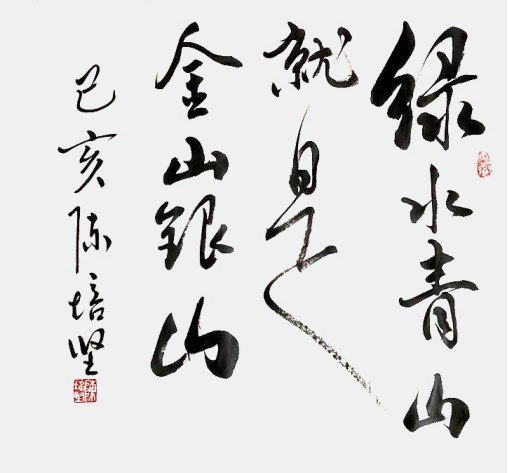 绿水青山
就是
金山银山
己亥 陈培坚